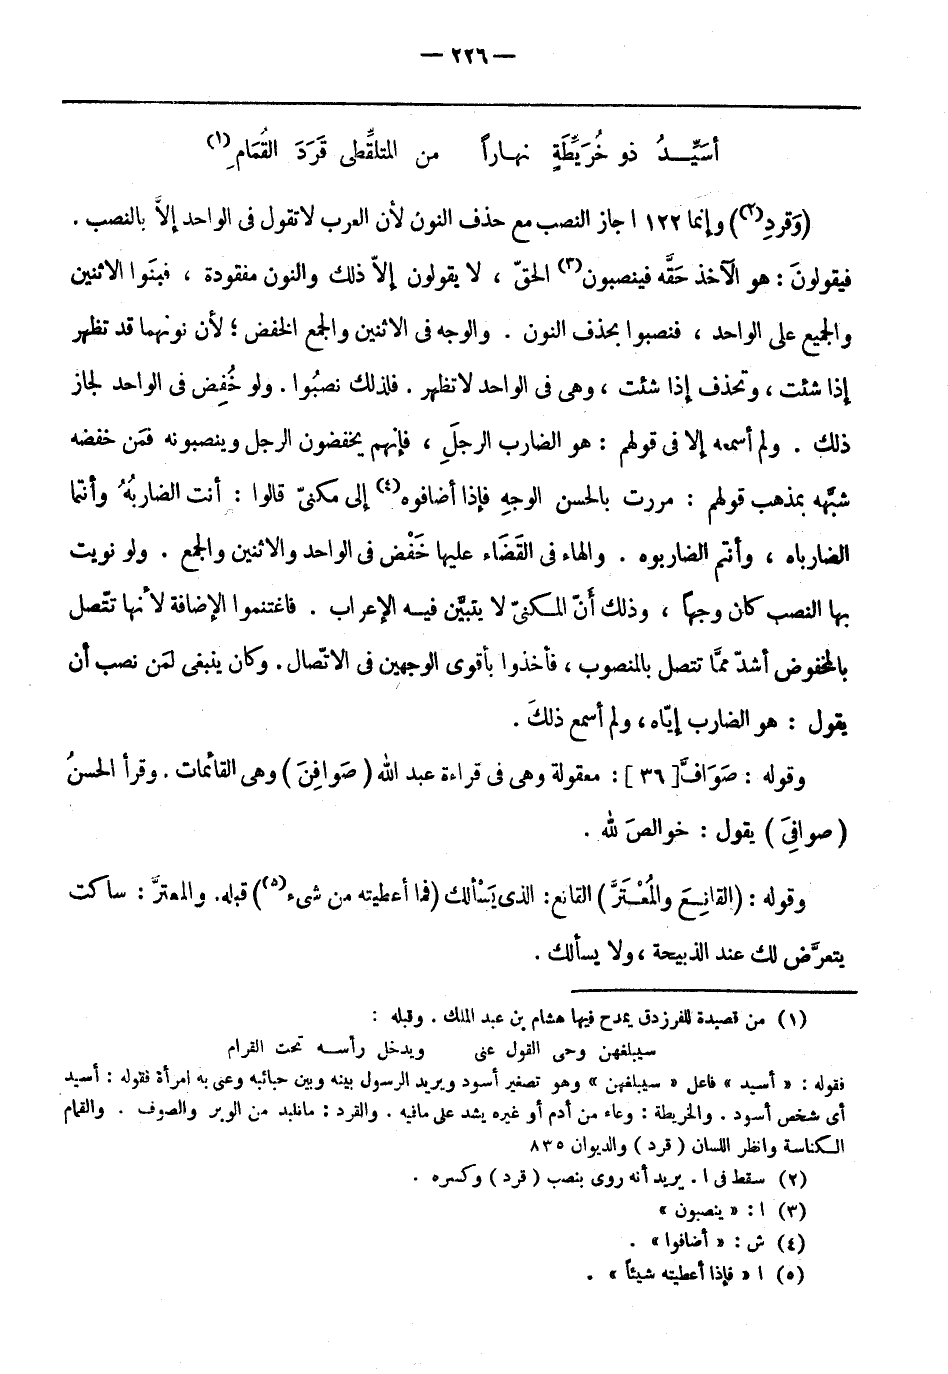 — ٢٢٦ —
أسَيِّـدُ ذو خُرَيِّطَةٍ نهـاراً من المتلقِّطى قَرَدَ القُمَامِ(١)
(وَقردِ(٢)) وإنما ١٢٢ ا جاز النصب مع حذف النون لأن العرب لا تقول فى الواحد إلاَّ بالنصب .
فيقولونَ : هو الآخذ حَقَّه فينصبون(٣) الحقّ ، لا يقولون إلاّ ذلك والنون مفقودة ، فبنَوا الاثنين
والجميع على الواحد ، فنصبوا بحذف النون . والوجه فى الاثنين والجمع الخفض ؛ لأن نونهما قد تظهر
إذا شئت ، وتحذف إذا شئت ، وهى فى الواحد لا تظهر . فلذلك نصبُوا . ولو خُفِض فى الواحد لجاز
ذلك . ولم أسمعه إلا فى قولهم : هو الضارب الرجلَِ ، فإنهم يخفضون الرجل وينصبونه فمَن خفضه
شبَّهه بمذهب قولهم : مررت بالحسن الوجهِ فإذا أضافوه(٤) إلى مكنىّ قالوا : أنت الضاربُهُ وأنتما
الضارباه ، وأنتم الضاربوه . والهاء فى القَضَاء عليها خَفْض فى الواحد والاثنين والجمع . ولو نويت
بها النصب كان وجهاً ، وذلك أَنّ المـكنىّ لا يتبيَّن فيـه الإعراب . فاغتنموا الإضافة لأنها تتّصل
بالمخفوض أشدّ ممَّا تتصل بالمنصوب ، فأخذوا بأقوى الوجهين فى الاتّصال . وكان ينبغى لمَن نصب أن
يقول : هو الضارب إيّاه ، ولم أسمع ذلكَ .
وقوله : صَوَافَّ [ ٣٦ ] : معقولة وهى فى قراءة عبد الله ( صَوافِنَ ) وهى القائمات . وقرأ الحسنُ
( صوافِىَ ) يقول : خوالصَ لله .
وقوله : (القانِـعَ والمُعْـتَرَّ) القانع : الذى يَسْألك (فما أعطيته من شىء(٥)) قبله . والمعترَّ : ساكت
يتعرَّض لك عند الذبيحة ، ولا يسألك .
(١) من قصيدة للفرزدق يمدح فيها هشام بن عبد الملك . وقبله :
سيبلغهن وحى القول عنى ويدخل رأسـه تحت القرام
فقوله : « أسيد » فاعل « سيبلغهن » وهو تصغير أسود ويريد الرسول بينه وبين حبائبه وعنى به امرأة فقوله : أسيد
أى شخص أسود . والخريطة : وعاء من أدم أو غيره يشد على مافيه . والقرد : ماتلبد من الوبر والصوف . والقمام
الكناسة وانظر اللسان ( قرد ) والديوان ٨٣٥
(٢) سقط فى ا . يريد أنه روى بنصب ( قرد ) وكسره .
(٣) ا : « ينصبون »
(٤) ش : « أضافوا » .
(٥) ا « فإذا أعطيته شيئاً » .